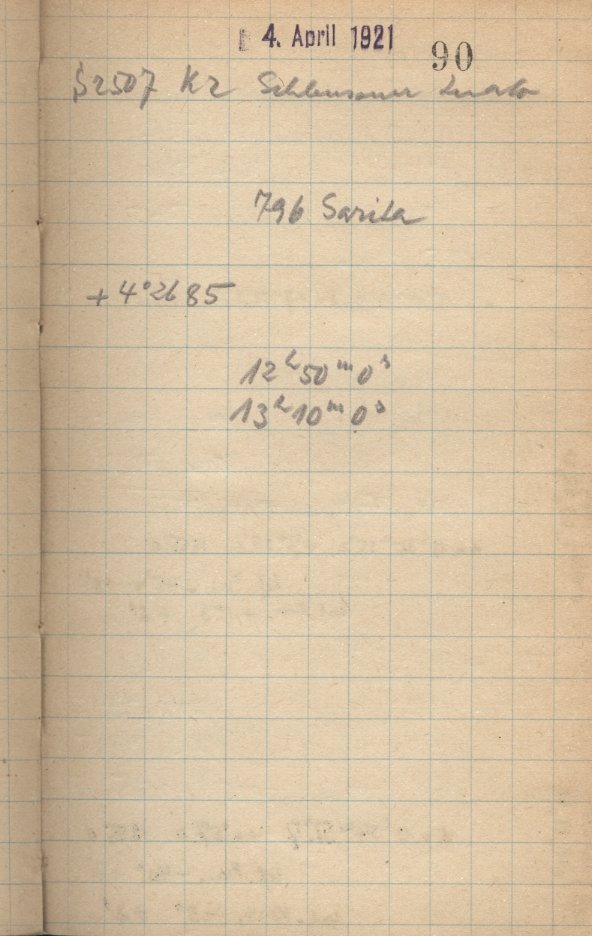 4. April 1921
90
S2507 K2 Schleussner
796 Sarita
+4°2685
12ʰ50ᵐ0ˢ
13ʰ10ᵐ0ˢ